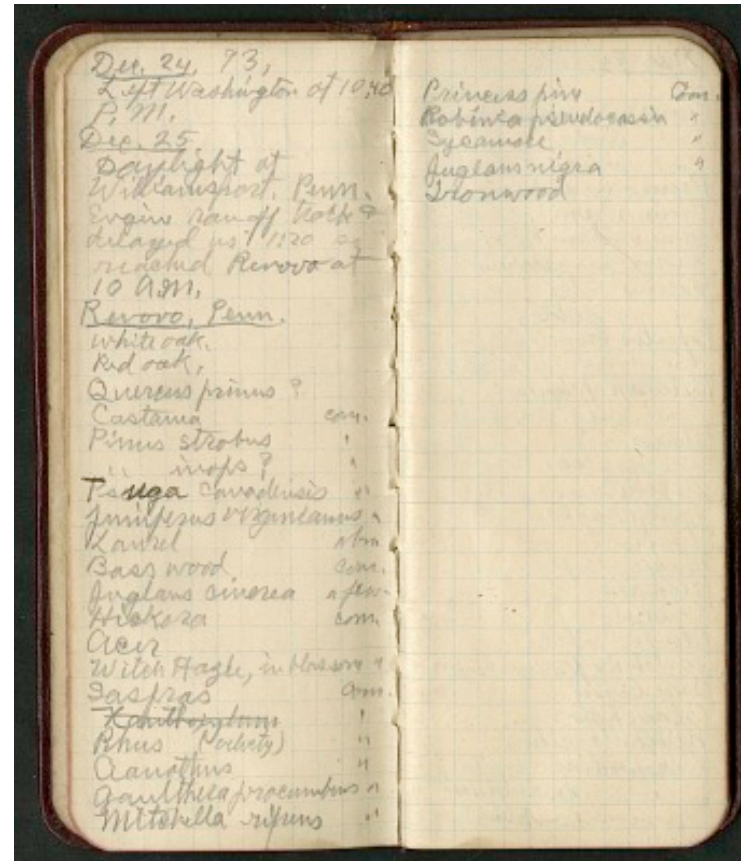 Dec. 24, 93,
Left Washington at 10,40
P. M.
Dec. 25
Daylight at
Williamsport, Penn.
Engine ran off track &
delayed us 1120 so
reached Renovo at
10 A.M.
Renovo, Penn.
White oak.
Red oak,
Quercus prinus ?
Castanea com.
Pinus strobus "
" inops ? "
Tsuga canadensis "
Juniperus virginianus "
Laurel abn
Bass wood com.
Juglans cinerea a few.
Hickora com.
Acer
Witch Hazle, in blossom "
Sasfras com.
Xanthoxylum "
Rhus "
Ceanothus "
Gaultheia procumbens "
Mitchella ripens "
Princess pine Com.
Robinia pseudocasia "
Sycamore "
Juglans nigra "
Ironwood